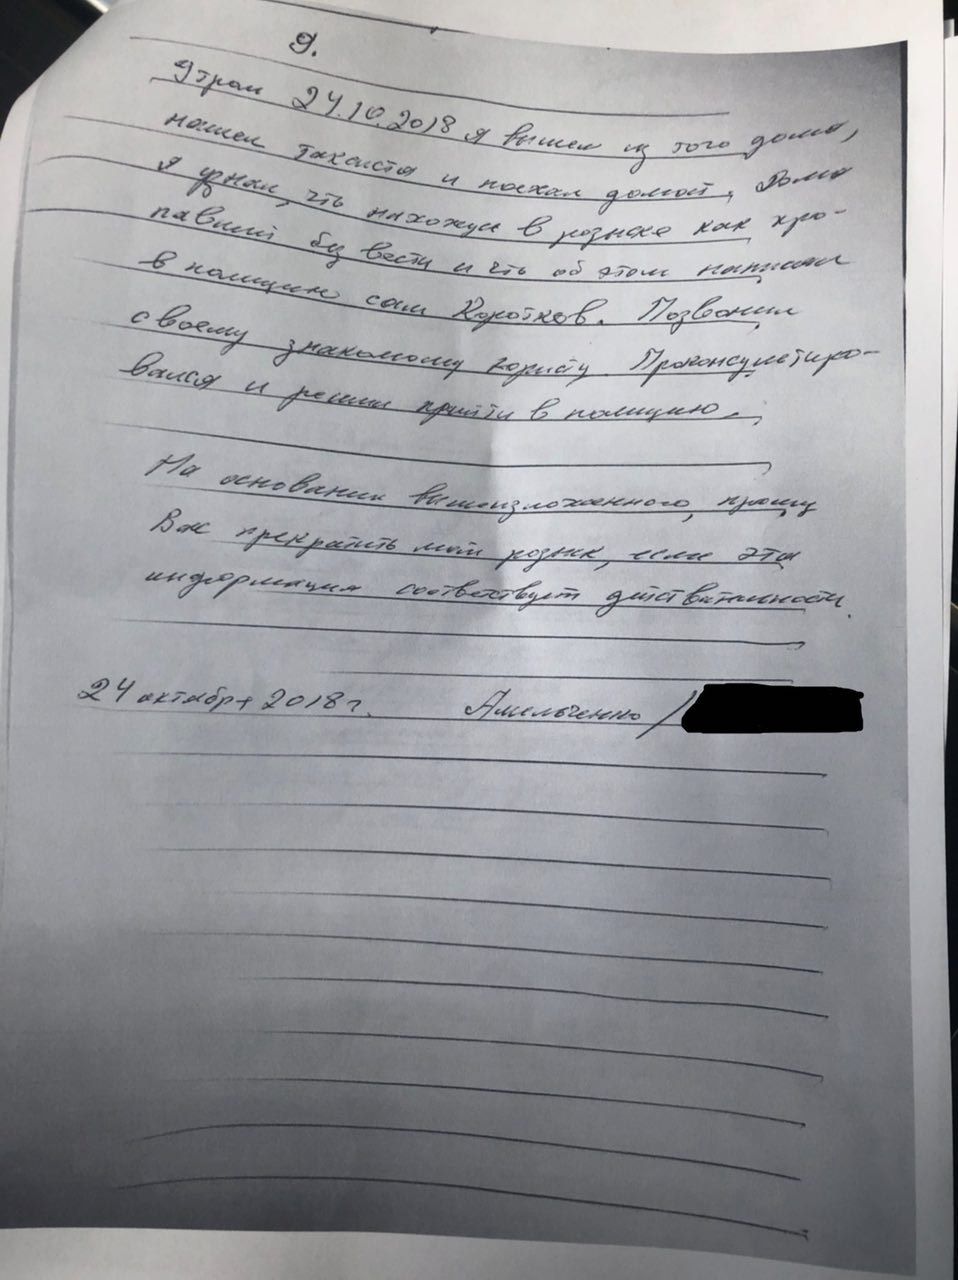 9.
Утром 24.10.2018 я вышел из того дома,
нашел таксиста и поехал домой, Дома
я узнал, что нахожусь в розыске как про-
павший без вести и что об этом написал
в полицию сам Коротков. Позвонил
своему знакомому юристу. Проконсультиро-
вался и решил прийти в полицию.
На основании вышеизложенного, прошу
Вас прекратить мой розыск, если эта
информация соответствует действительности.
24 октября 2018 г. Амельченко /